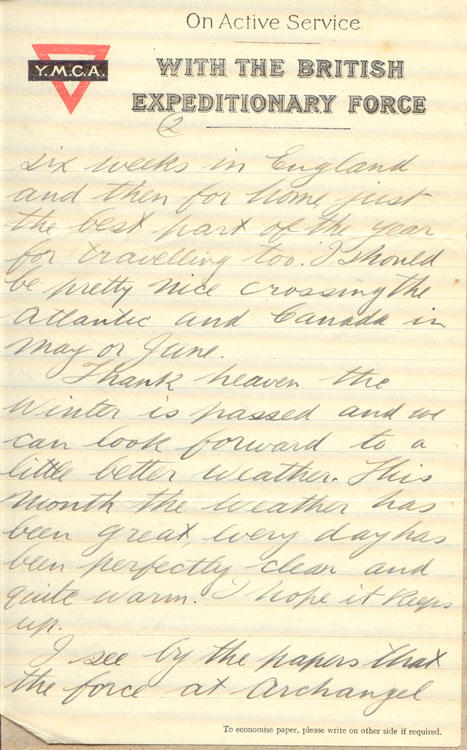 On Active Service
Y.M.C.A.
WITH THE BRITISH
EXPEDITIONARY FORCE
(2
six weeks in England
and then for home just
the best part of the year
for travelling too. I should
be pretty nice crossing the
Atlantic and Canada in
May or June.
Thank heaven the
Winter is passed and we
can look forward to a
little better weather. This
month the weather has
been great, every day has
been perfectly clear and
quite warm. I hope it keeps
up.
I see by the papers that
the force at Archangel
To economise paper, please write on other side if required.